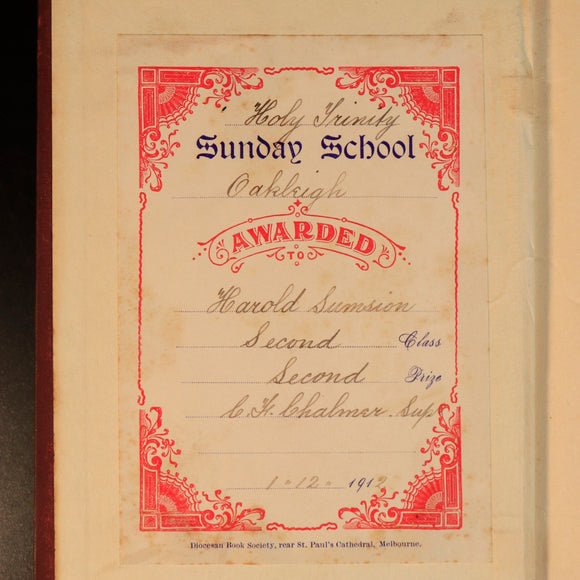 Holy Trinity
Sunday School
Oakleigh
AWARDED
TO
Harold Sumsion
Second Class
Second Prize
C. H. Chalmer. Sup
1 " 12 " 1912
Diocesan Book Society, rear St. Paul's Cathedral, Melbourne.